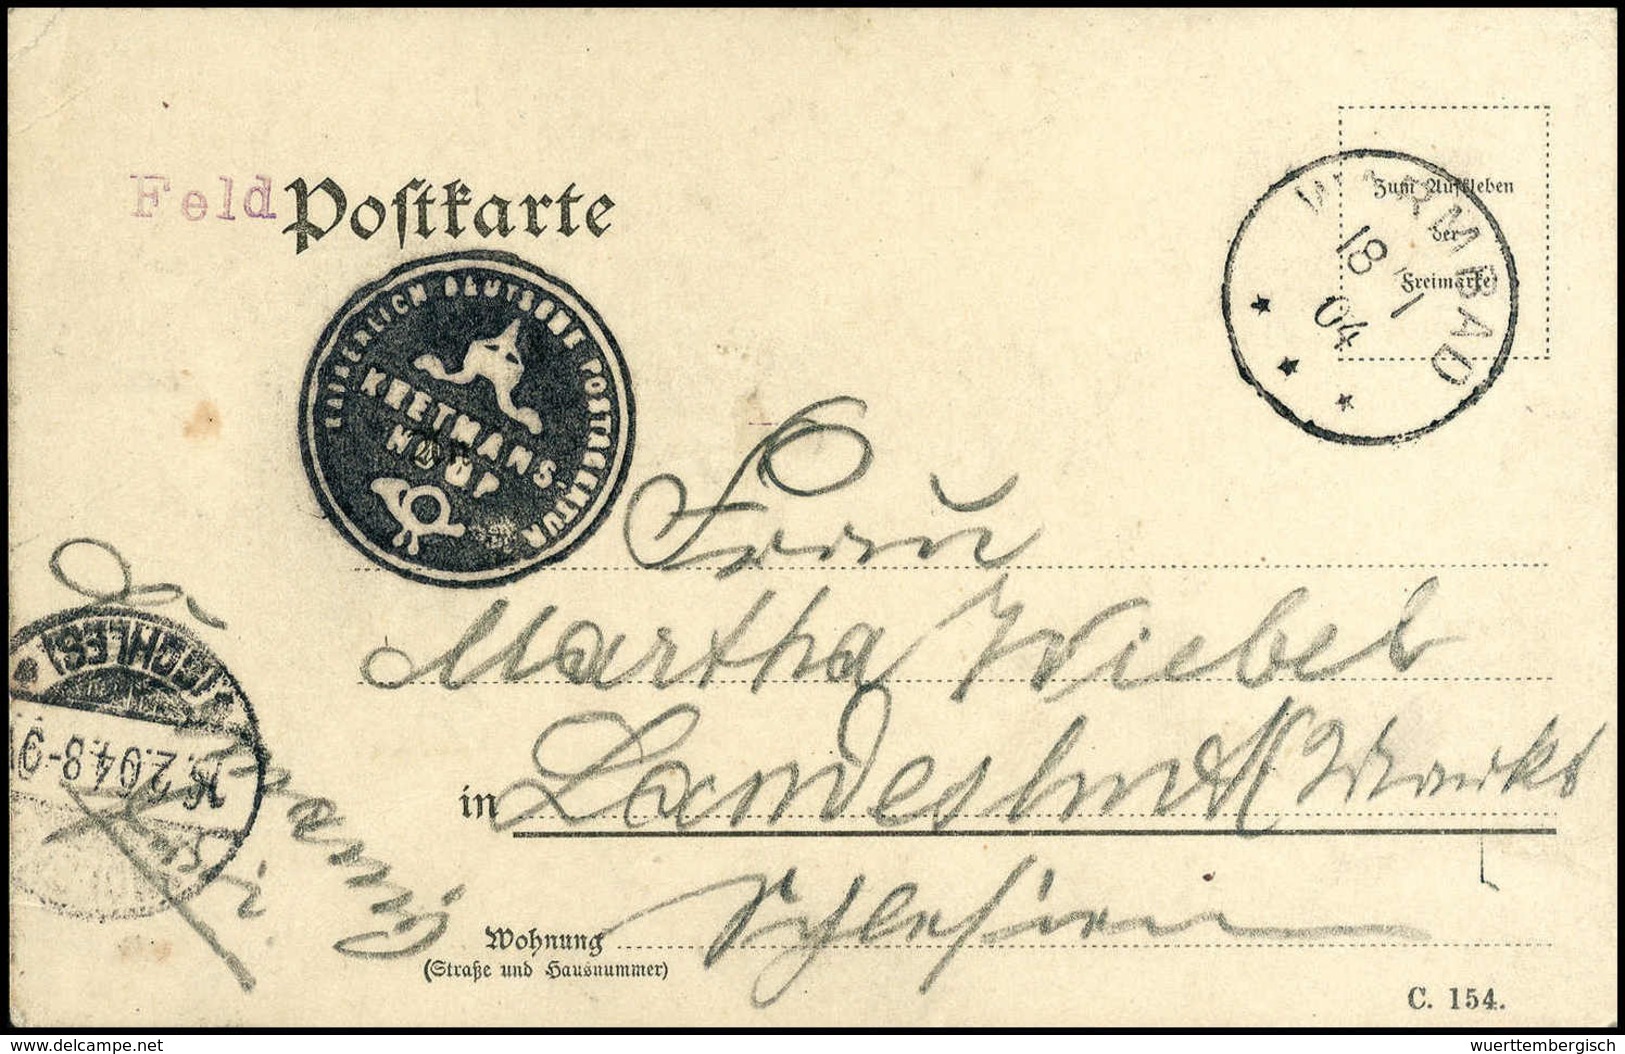 Feld
Postkarte
KAISERLICH DEUTSCHE POSTAGENTUR
KEETMANS,
HOOP
WARMBAD
18 1
04
Zum Aufkleben
der
Freimarke
An
Frau
Martha Wiebel
in Landeshut Markt
Schlesien
(SCHLES)
.2.04.8-9V
Wohnung
(Straße und Hausnummer)
C. 154.
www.delcampe.net
wuerttembergisch